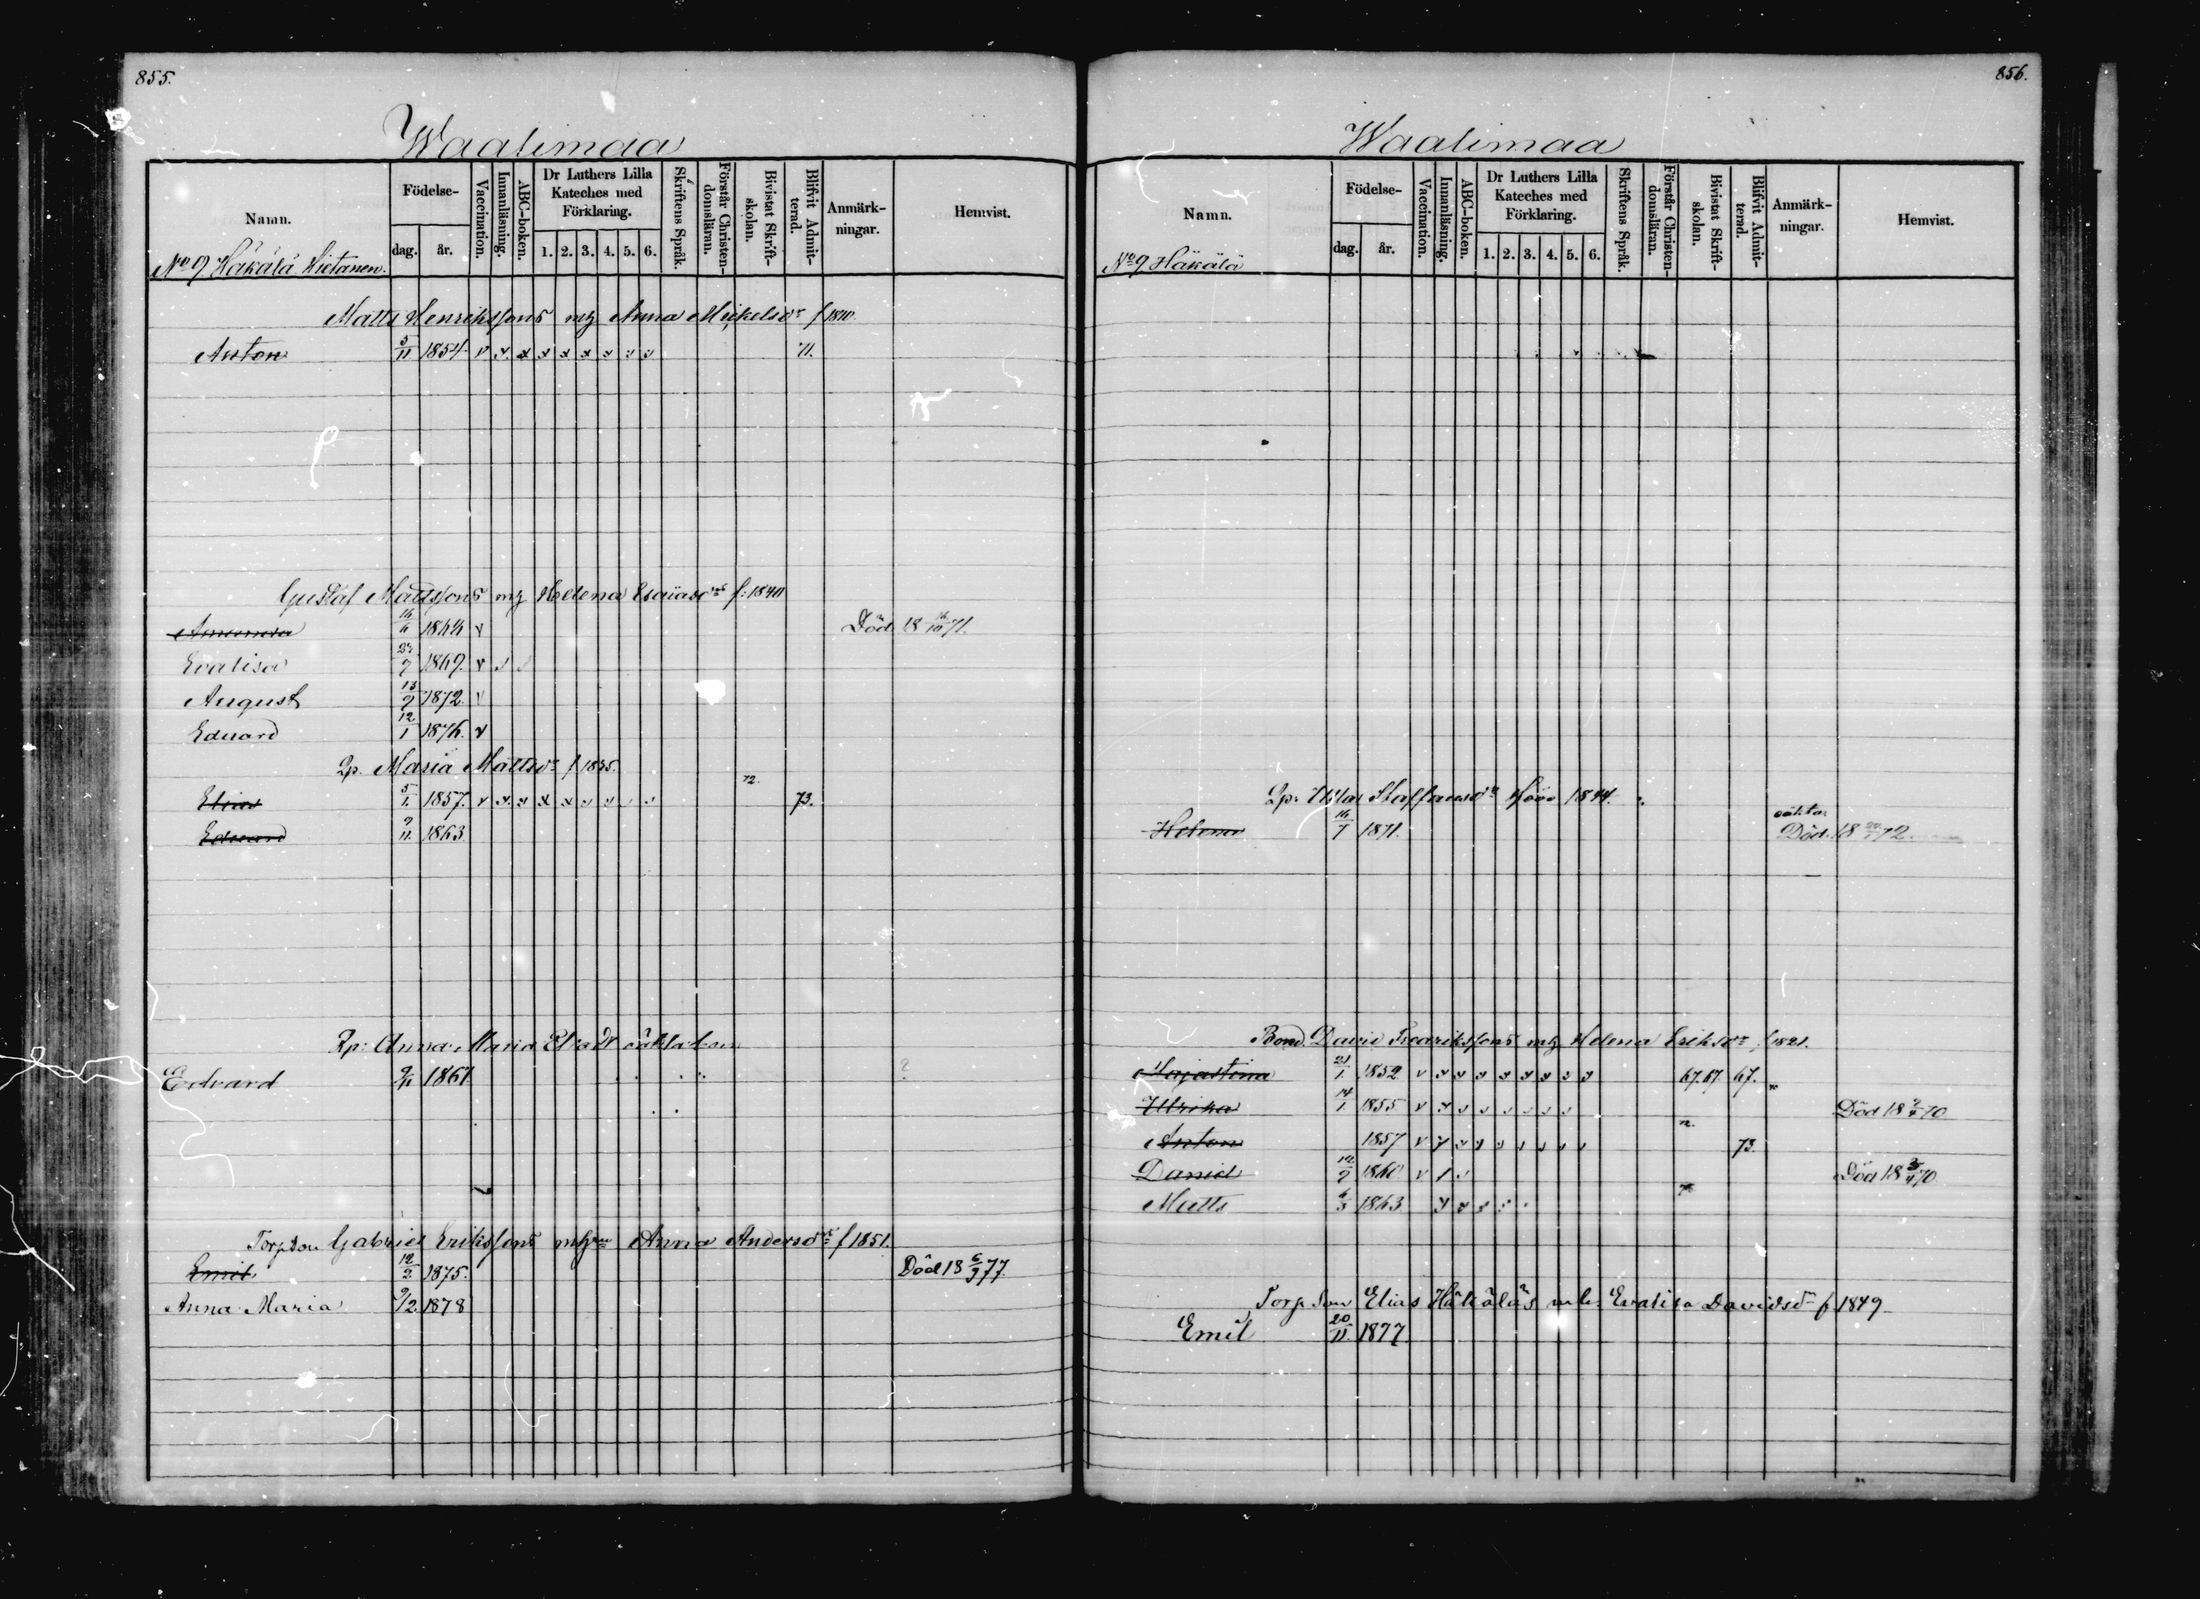 855.
Waalimaa
Namn.
Födelse-
dag. år.
Vaccination.
Innanläsning.
ABC-boken.
Dr Luthers Lilla Kateches med Förklaring.
1. 2. 3. 4. 5. 6.
Skriftens Språk.
Förstår Christen-domsläran.
Bivistat Skrift-skolan.
Blifvit Admit-terad.
Anmärk-ningar.
Hemvist.
No 9 Häkälä Hietanen.
Matts Henrikssons mh Anna Mickelsdr f 1810.
Anton 5/11 1854 v x x x x x x x x 71.
Gustaf Mattssons mh Helena Esaiasdr f: 1840
16/4 1864 v Död 18 16/10 71.
Evalisa 1869. v
August 13/9 1872. v
Eduard 12/1 1876. v
Qp. Maria Mattsdr f 1835.
72.
Elias 5/1 1857. v x x x x 73.
Eduard 9/11 1863
Qp: Anna Maria
Edvard 9/11 1861 ?
Torp.Son Gabriel Erikssons mh Anna Andersdr f 1851.
Emil 12/2 1875. Död 18 6/9 77.
Anna Maria 9/2 1878
856.
Waalimaa
Namn.
Födelse-
dag. år.
Vaccination.
Innanläsning.
ABC-boken.
Dr Luthers Lilla Kateches med Förklaring.
1. 2. 3. 4. 5. 6.
Skriftens Språk.
Förstår Christen-domsläran.
Bivistat Skrift-skolan.
Blifvit Admit-terad.
Anmärk-ningar.
Hemvist.
No 9 Häkälä
Qp. Ulla Staffansdr 1844.
oäkta
Helena 16/7 1871. Död. 18 72.
Bond. David Fredrikssons mh Helena Eriksdr f 1821.
21/1 1852 v x x x x x x x x 67. 67. 67.
Ulrika 14/1 1855 v x Död 18 70
Anton 1857 v 73.
Daniel 12/9 1860 v Död 18 70
Matts 6/3 1863
Torp Son Elias Häkäläs mh. Evalisa Davidsdr f. 1849
Emil 20/11 1877